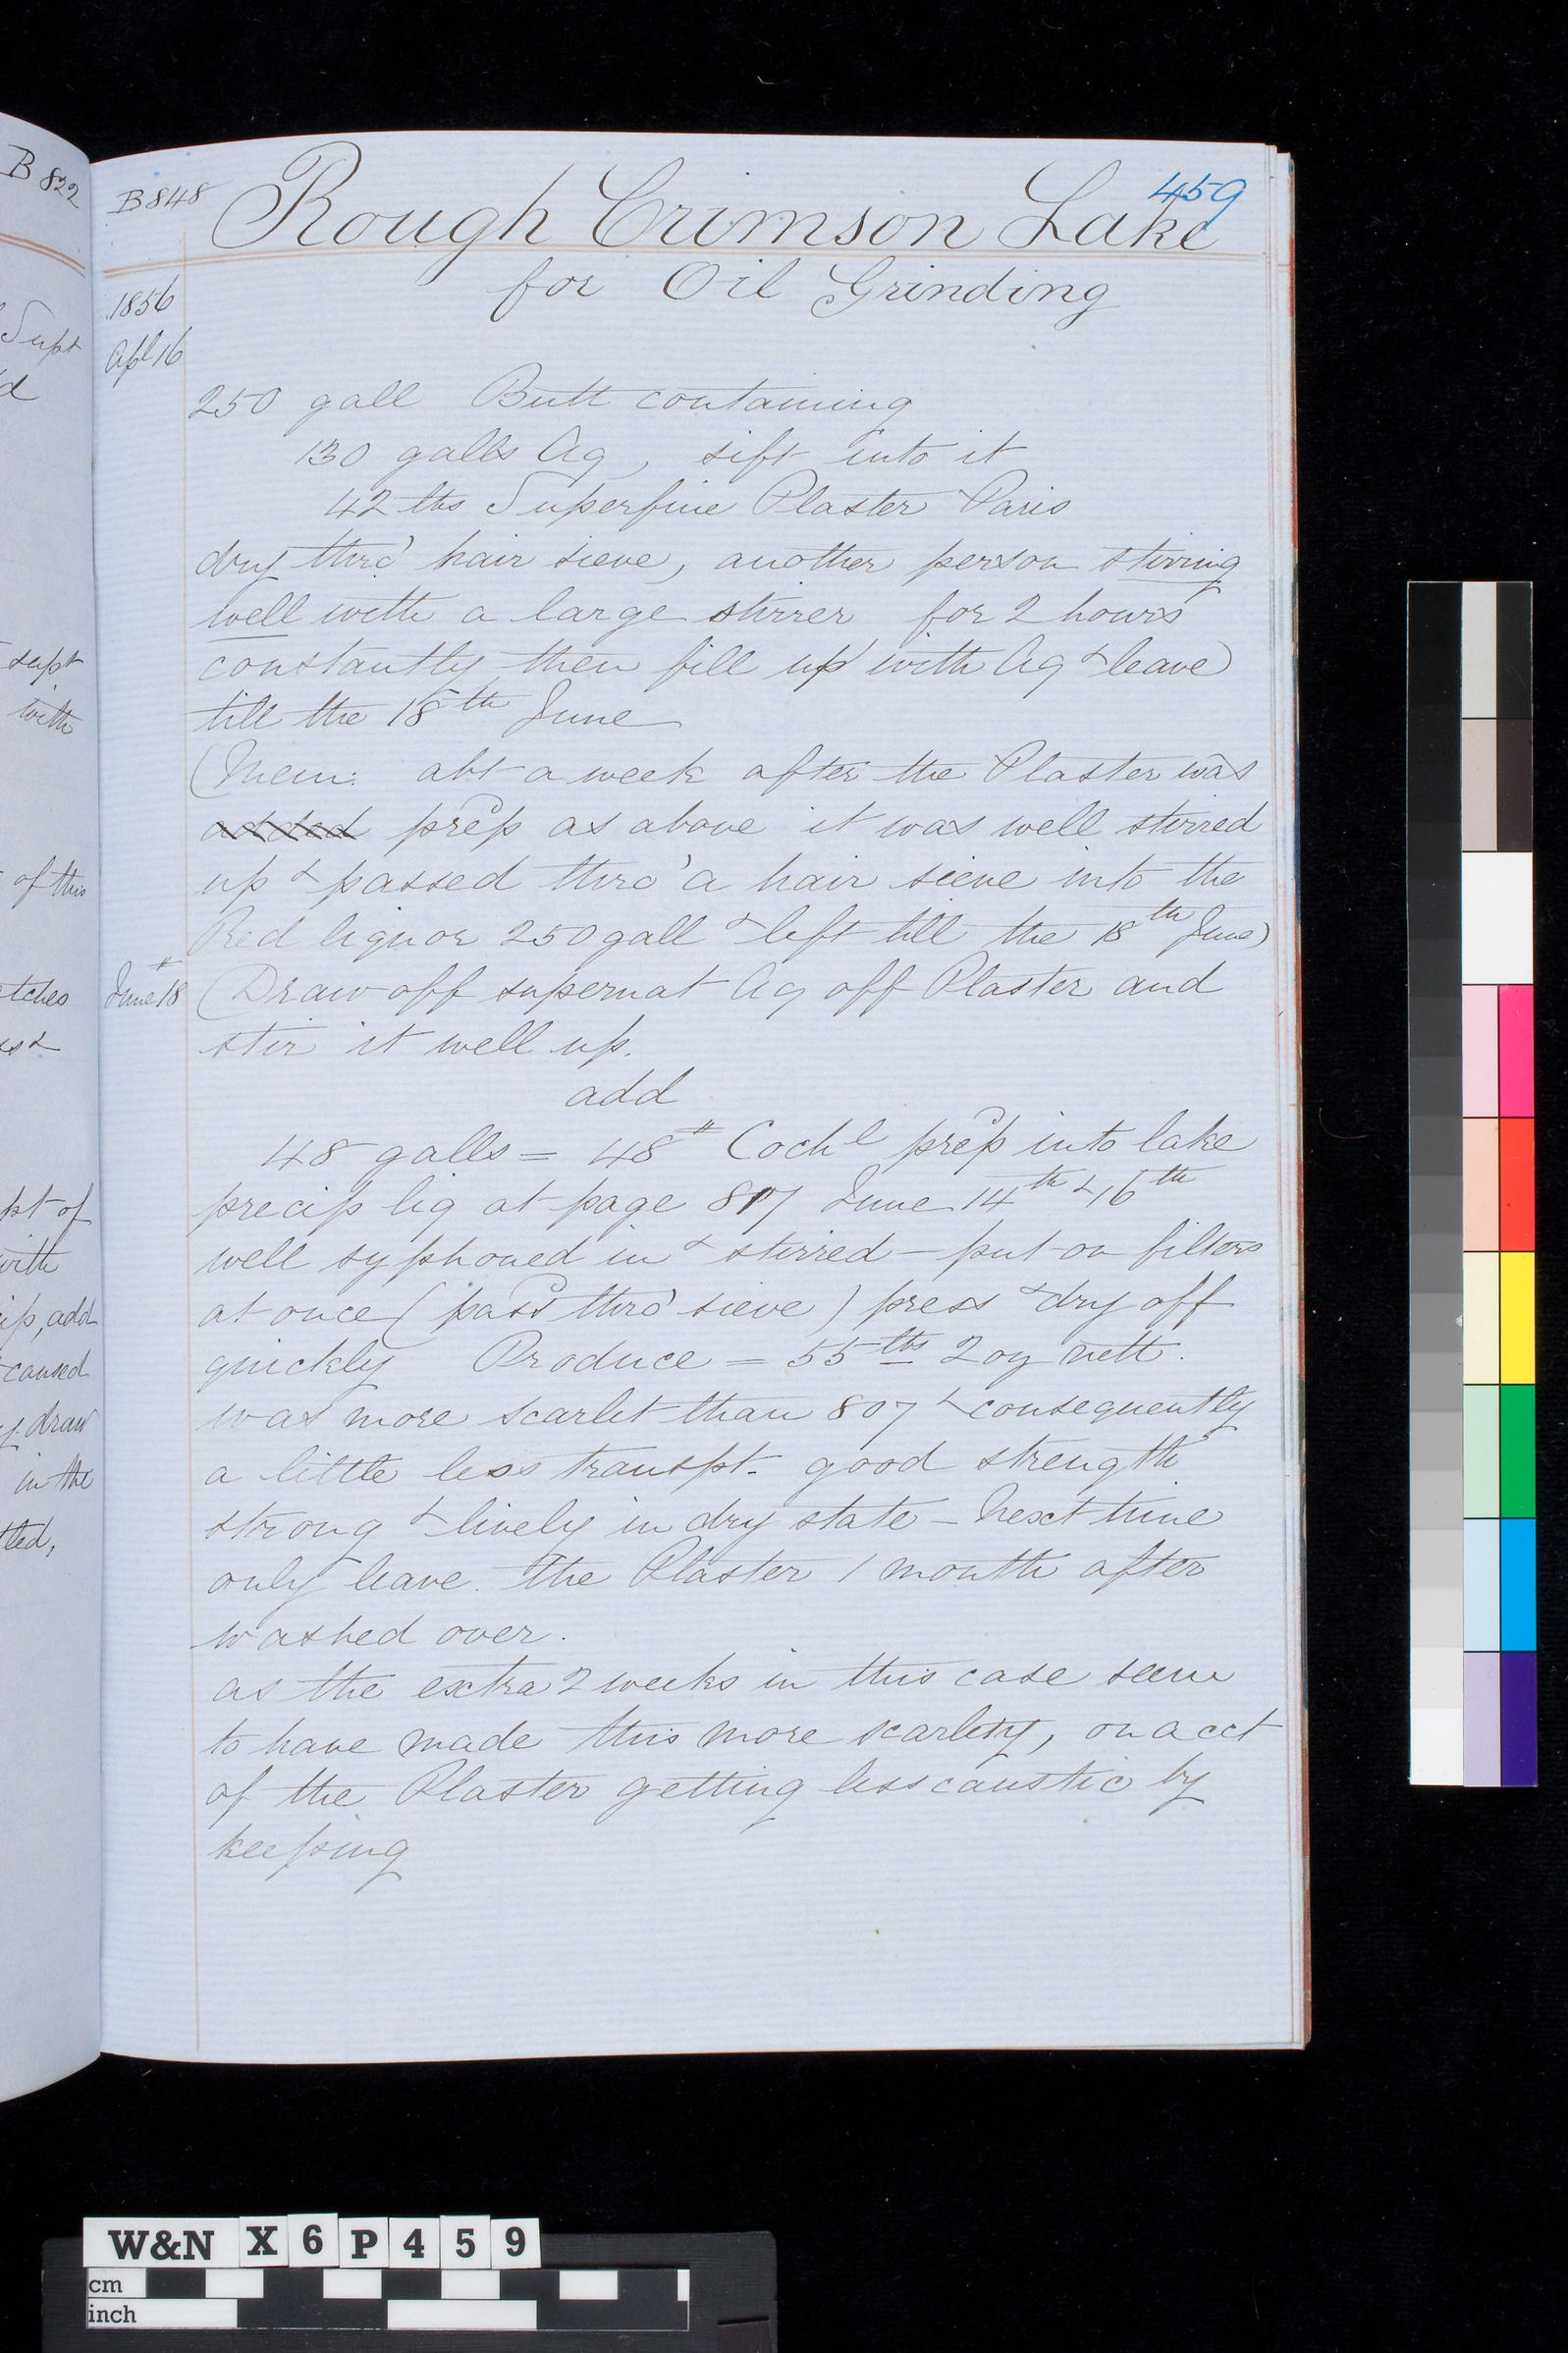 B 822
B 848
459
Rough Crimson Lake
for Oil Grinding
1856
Apl 16
250 gall Butt containing
130 galls Aq, sift into it
42 lbs Superfine Plaster Paris
dry thro' hair sieve, another person stirring
well with a large stirrer for 2 hours
constantly then fill up with Aq & leave
till the 18th June
(Mem: abt a week after the Plaster was
added prep as above it was well stirred
up & passed thro' a hair sieve into the
Red liquor 250 gall & left till the 18th June)
June 18
(Draw off supernat Aq off Plaster and
stir it well up.
add
48 galls = 48# Cochl prep into lake
precip liq at page 807 June 14th & 16th
well syphoned in & stirred – put on filters
at once (pass thro' sieve) press & dry off
quickly Produce = 55 lbs 2 oz nett.
was more scarlet than 807 & consequently
a little less transpt. good strength
strong & lively in dry state – Next time
only leave the Plaster 1 month after
washed over.
as the extra 2 weeks in this case seem
to have made this more scarlety, on acct
of the Plaster getting less caustic by
keeping
Supt
d
supt
with
of this
tches
pt of
with
ip, add
caused
draw
in the
tled,
W&N X 6 P 4 5 9
cm
inch